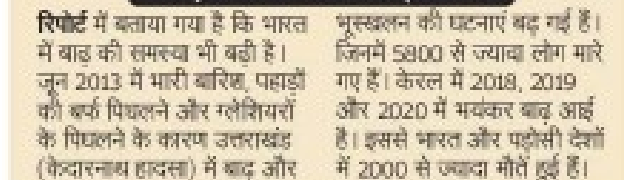 रिपोर्ट में बताया गया है कि भारत
में बाढ़ की समस्या भी बढ़ी है।
जून 2013 में भारी बारिश, पहाड़ों
की बर्फ पिघलने और ग्लेशियरों
के पिघलने के कारण उत्तराखंड
(केदारनाथ हादसा) में बाढ़ और
भूस्खलन की घटनाएं बढ़ गई हैं।
जिनमें 5800 से ज्यादा लोग मारे
गए हैं। केरल में 2018, 2019
और 2020 में भयंकर बाढ़ आई
है। इससे भारत और पड़ोसी देशों
में 2000 से ज्यादा मौतें हुई हैं।